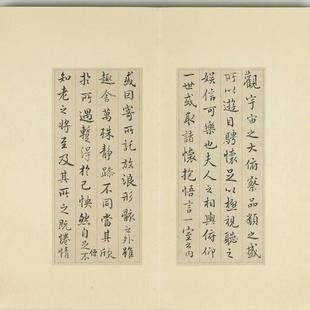 觀宇宙之大俯察品類之盛
所以遊目騁懷足以極視聽之
娛信可樂也夫人之相與俯仰
一世或取諸懷抱悟言一室之內
或因寄所託放浪形骸之外雖
趣舍萬殊靜躁不同當其欣
於所遇蹔得於己怏然自足不
僧
知老之將至及其所之既惓情